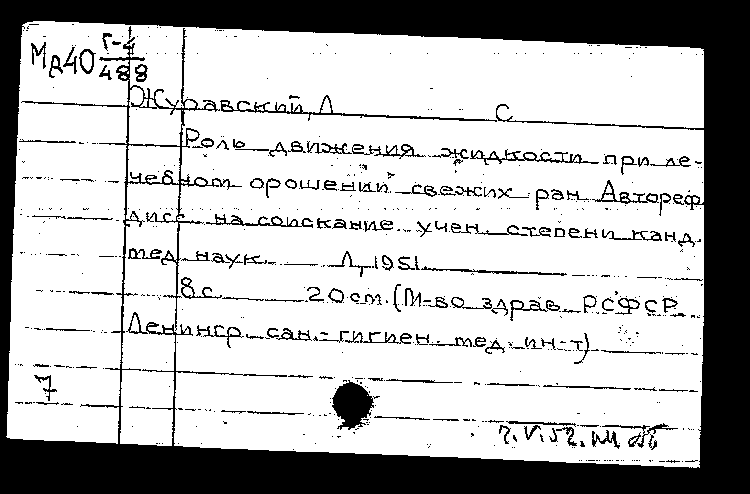 Мд40 Г-4/488
Журавский, Л С
Роль движения жидкости при ле-
чебном орошении свежих ран Автореф
дисс на соискание учен. степени канд.
мед наук. Л, 1951
8 с 20 см. (М-во здрав РСФСР.
Ленингр. сан.-гигиен. мед. ин-т)
7